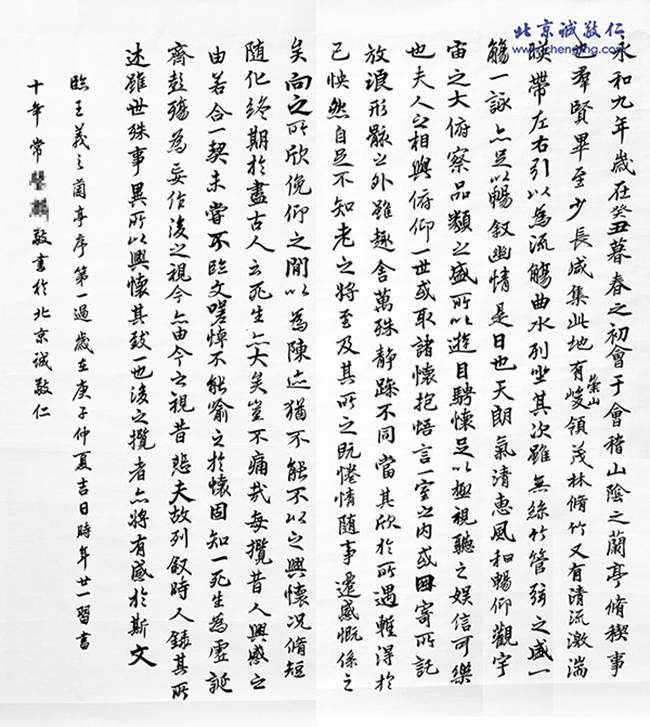 北京诚敬仁
www.chengjing.cn
永和九年歲在癸丑暮春之初會于會稽山陰之蘭亭脩稧事
也羣賢畢至少長咸集此地有崇山峻領茂林脩竹又有清流激湍
暎帶左右引以為流觴曲水列坐其次雖無絲竹管弦之盛一
觴一詠亦足以暢叙幽情是日也天朗氣清惠風和暢仰觀宇
宙之大俯察品類之盛所以遊目騁懷足以極視聽之娛信可樂
也夫人之相與俯仰一世或取諸懷抱悟言一室之內或因寄所託
放浪形骸之外雖趣舍萬殊靜躁不同當其欣於所遇蹔得於
己怏然自足不知老之將至及其所之既惓情隨事遷感慨係之
矣向之所欣俛仰之閒以為陳迹猶不能不以之興懷况脩短
隨化終期於盡古人云死生亦大矣豈不痛哉每攬昔人興感之
由若合一契未嘗不臨文嗟悼不能喻之於懷固知一死生為虛誕
齊彭殤為妄作後之視今亦由今之視昔悲夫故列叙時人錄其所
述雖世殊事異所以興懷其致一也後之攬者亦將有感於斯文
臨王羲之蘭亭序第一過歲在庚子仲夏吉日時年廿一習書
十年常敬書於北京誠敬仁